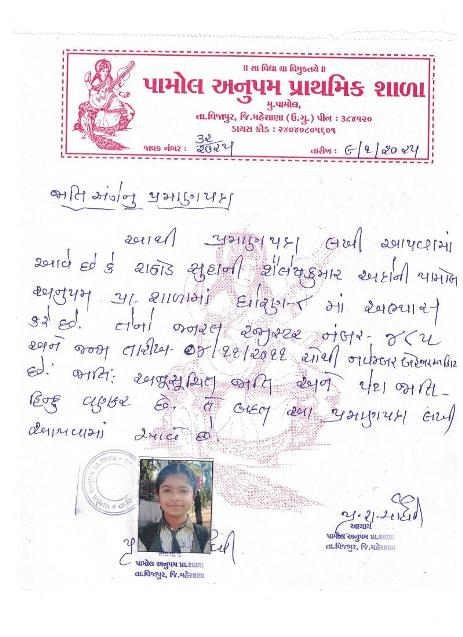 ॥ સા વિદ્યા યા વિમુક્તયે ॥
પામોલ અનુપમ પ્રાથમિક શાળા
મુ.પામોલ,
તા.વિજાપુર, જિ.મહેસાણા (ઉ.ગુ.) પીન : ૩૮૪૫૨૦
ડાયસ કોડ : ૨૪૦૪૦૮૦૫૬૦૧
જાવક નંબર : ૩૨/૨૦૨૫ તારીખ : ૬/૧/૨૦૨૫
જાતિ અંગેનુ પ્રમાણપત્ર
આથી પ્રમાણપત્ર લખી આપવામાં
આવે છે કે રાઠોડ સુહાની શૈલેષકુમાર અહીંની પામોલ
અનુપમ પ્રા. શાળામાં ધોરણ-૮ માં અભ્યાસ
કરે છે. તેનો જનરલ રજીસ્ટર નંબર- ૪૮૫
અને જન્મ તારીખ- ૦૪/૧૧/૨૦૧૧ ચોથી નવેમ્બર બે હજાર અગિયાર
છે. જાતિ: અનુસૂચિત જાતિ અને પેટા જાતિ-
હિન્દુ વણકર છે. તે બદલ આ પ્રમાણપત્ર લખી
આપવામાં આવે છે.
આચાર્ય
પામોલ અનુપમ પ્રા.શાળા
તા.વિજાપુર, જિ.મહેસાણા
પામોલ અનુપમ પ્રા.શાળા
તા.વિજાપુર, જિ.મહેસાણા